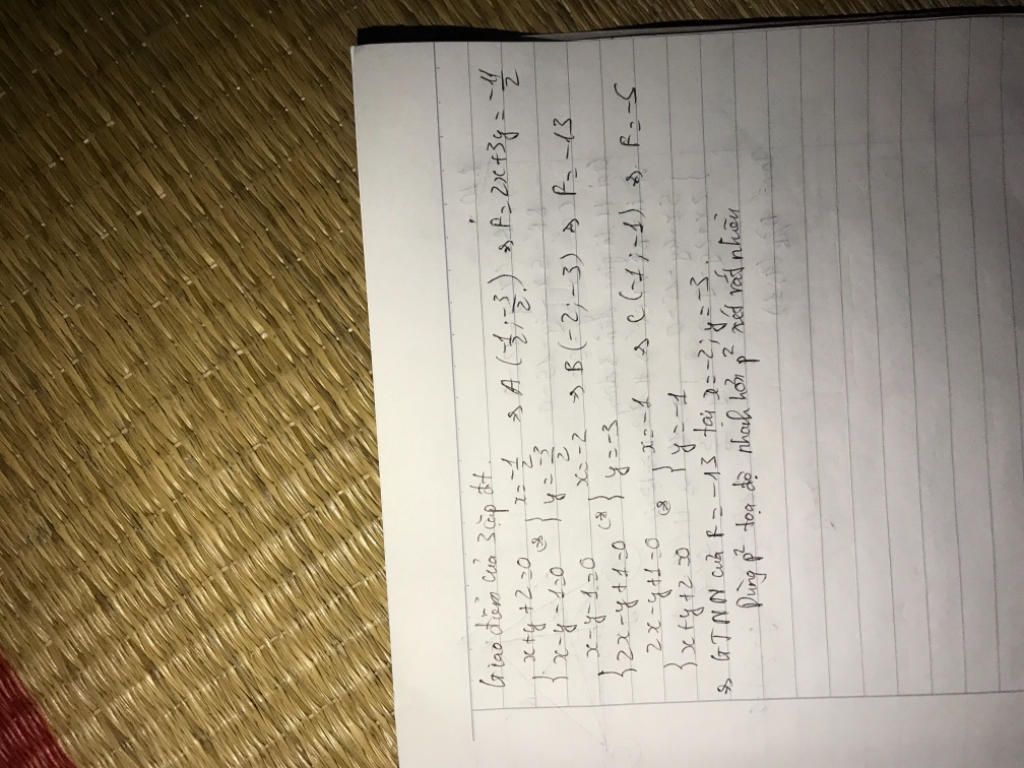 Giao điểm của 3 cặp đt
{ x+y+2=0 / x-y-1=0 ⇔ { x=-1/2 / y=-3/2 ⇒ A(-1/2; -3/2) ⇒ P=2x+3y=-11/2
{ x-y-1=0 / 2x-y+1=0 ⇔ { x=-2 / y=-3 ⇒ B(-2; -3) ⇒ P=-13
{ 2x-y+1=0 / x+y+2=0 ⇔ { x=-1 / y=-1 ⇒ C(-1; -1) ⇒ P=-5
⇒ GTNN của P=-13 tại x=-2; y=-3
Dùng p² toạ độ nhanh hơn p² xét rất nhiều